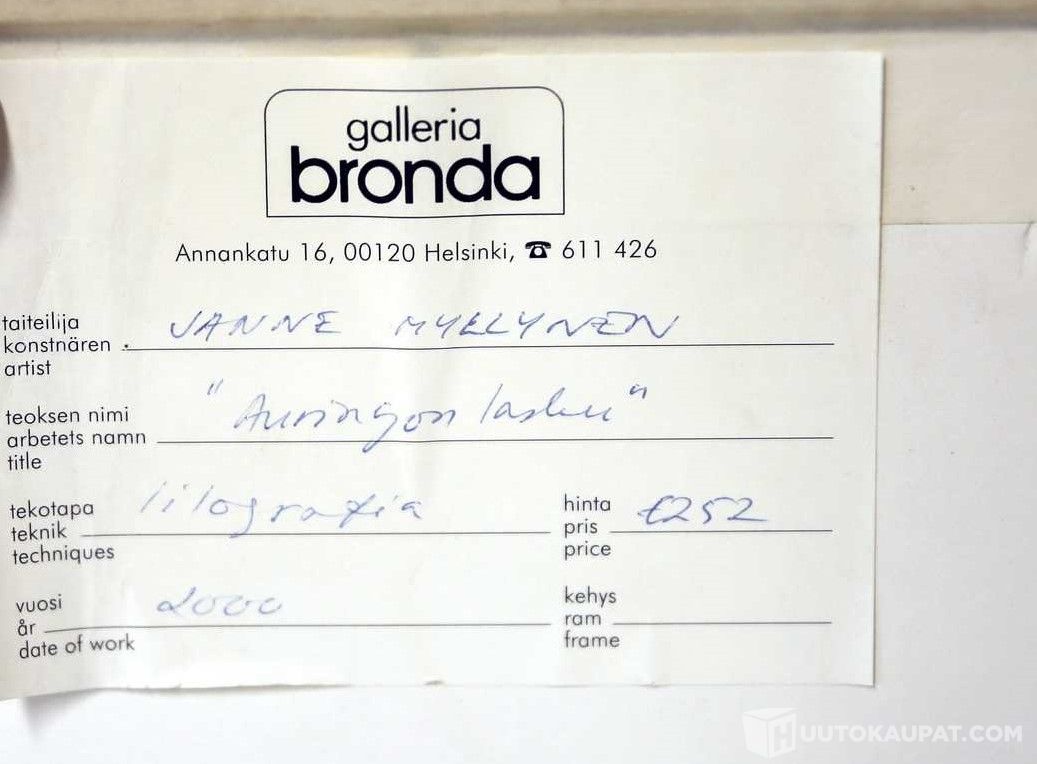 galleria
bronda
Annankatu 16, 00120 Helsinki, ☎ 611 426
taiteilija
konstnären JANNE MYLLYNEN
artist
teoksen nimi
arbetets namn "Auringon lasku"
title
tekotapa
teknik litografia
techniques
hinta
pris €252
price
vuosi
år 2000
date of work
kehys
ram
frame
HUUTOKAUPAT.COM